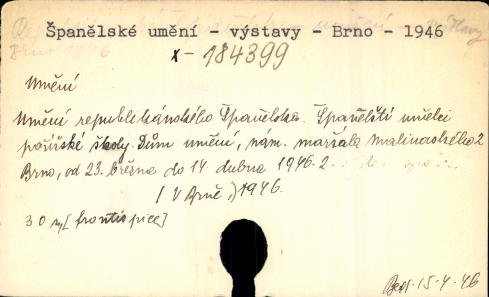 Španělské umění - výstavy - Brno - 1946
x - 184399
Umění
Umění republikánského Španělska. Španělští umělci
pařížské školy. Dům umění, nám. maršála Malinovského 2
Brno, od 23. března do 14. dubna 1946. 2.
(V Brně,) 1946.
30 [frontispice]
15-4-46